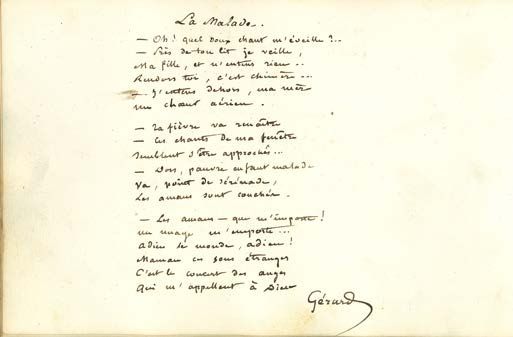 La Malade.
— Oh! quel doux chant m'éveille?..
— Près de ton lit je veille,
Ma fille, et n'entens rien..
Rendors toi, c'est chimère...
— J'entens dehors, ma mère
un chœur aérien.
— Ta fièvre va renaître
— Ces chants de ma fenêtre
Semblent s'être approchés...
— Dors, pauvre enfant malade
Va, point de sérénade,
Les amans sont couchés.
— Les amans — que m'importe!
un nuage m'emporte...
Adieu le monde, adieu!
Maman ces sons étranges
C'est le concert des anges
Qui m'appellent à Dieu
Gérard